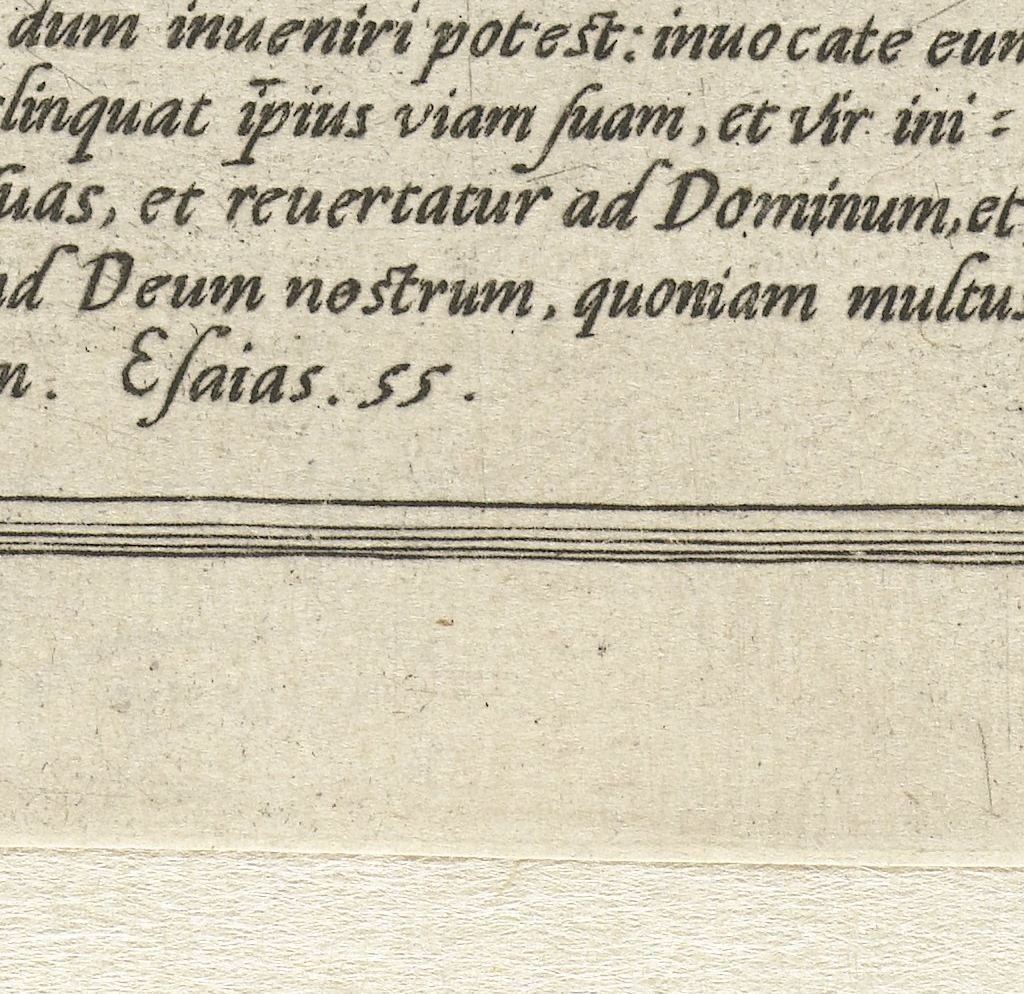 dum inueniri potest: inuocate eum
linquat ip̄ius viam ſuam, et vir ini =
ſuas, et reuertatur ad Dominum, et
ad Deum nostrum, quoniam multus
n. Eſaias. 55.